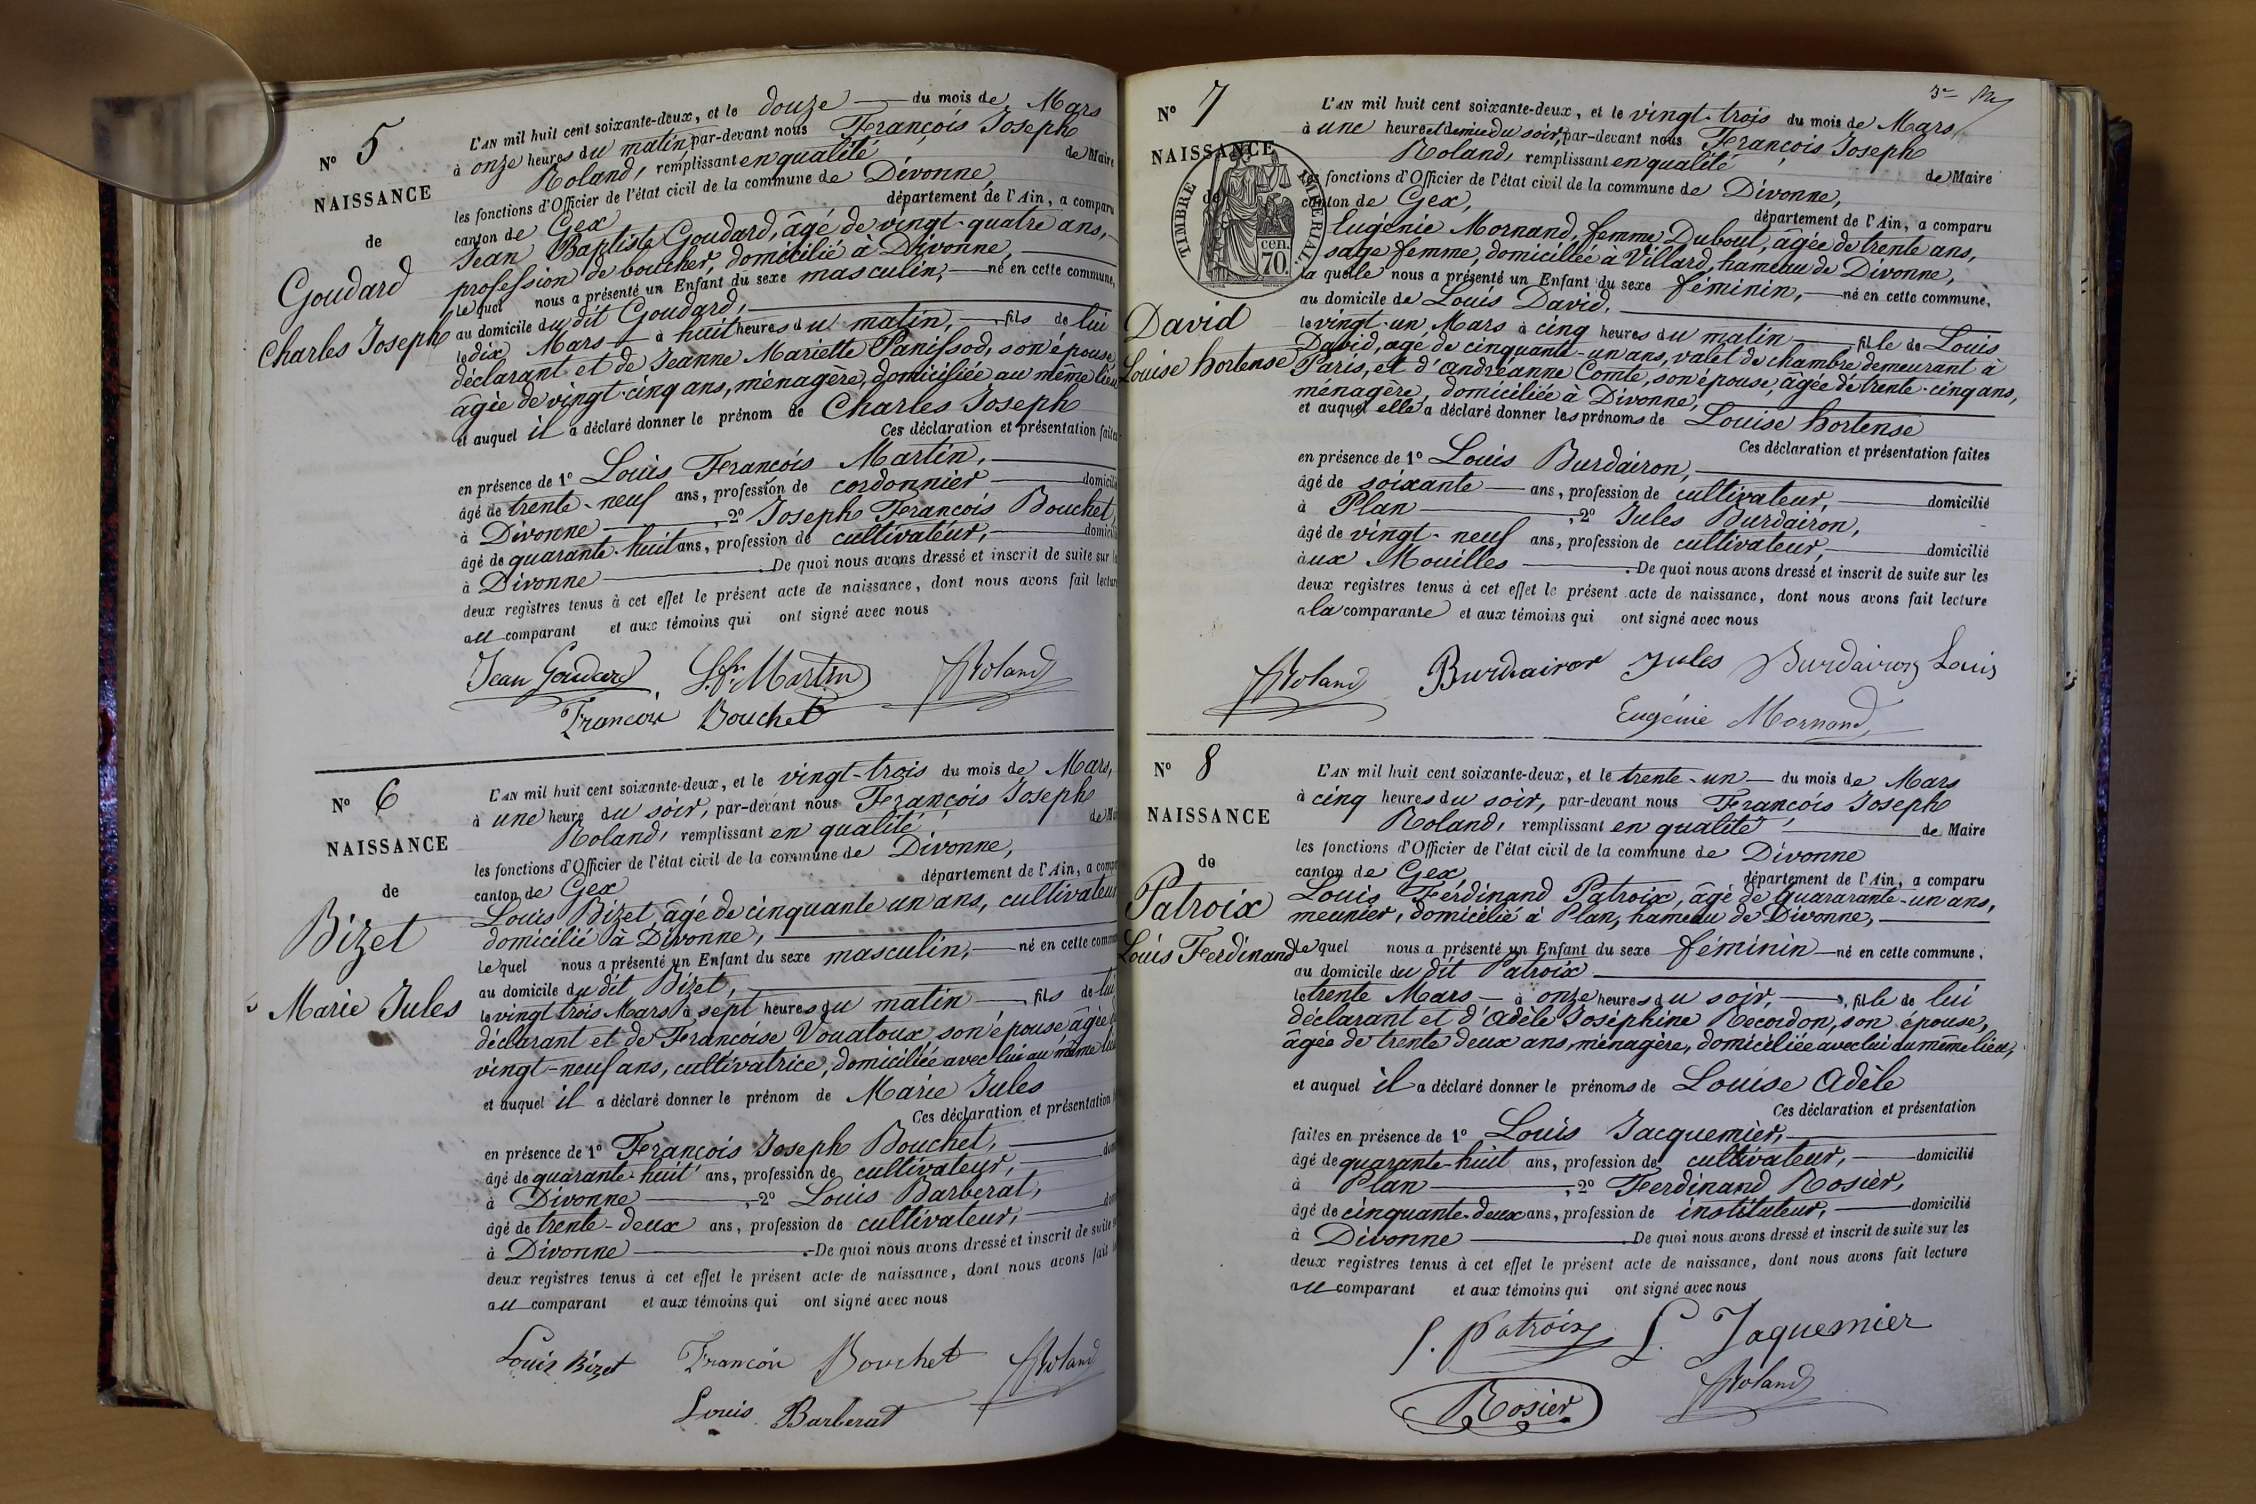 N° 5
NAISSANCE
de
Goudard
Charles Joseph
L'AN mil huit cent soixante-deux, et le douze du mois de Mars
à onze heures du matin, par-devant nous François Joseph
Roland, remplissant en qualité de Maire
les fonctions d'Officier de l'état civil de la commune de Divonne,
canton de Gex département de l'Ain, a comparu
Jean Baptiste Goudard, âgé de vingt-quatre ans,
profession de boucher, domicilié à Divonne,
lequel nous a présenté un Enfant du sexe masculin, né en cette commune,
au domicile du dit Goudard,
le dix Mars à huit heures du matin, fils de lui
déclarant et de Jeanne Mariette Panissod, son épouse
âgée de vingt-cinq ans, ménagère, domiciliée au même lieu
et auquel il a déclaré donner le prénom de Charles Joseph
Ces déclaration et présentation faites
en présence de 1° Louis François Martin,
âgé de trente-neuf ans, profession de cordonnier domicilié
à Divonne, 2° Joseph François Bouchet,
âgé de quarante-huit ans, profession de cultivateur, domicilié
à Divonne. De quoi nous avons dressé et inscrit de suite sur les
deux registres tenus à cet effet le présent acte de naissance, dont nous avons fait lecture
au comparant et aux témoins qui ont signé avec nous
Jean Goudard L. f. Martin Roland
François Bouchet
N° 6
NAISSANCE
de
Bizet
Marie Jules
L'AN mil huit cent soixante-deux, et le vingt-trois du mois de Mars,
à une heure du soir, par-devant nous François Joseph
Roland, remplissant en qualité de Mai
les fonctions d'Officier de l'état civil de la commune de Divonne,
canton de Gex département de l'Ain, a compa
Louis Bizet, âgé de cinquante un ans, cultivateur
domicilié à Divonne,
lequel nous a présenté un Enfant du sexe masculin, né en cette comm
au domicile du dit Bizet,
le vingt trois Mars à sept heures du matin, fils de lui
déclarant et de Françoise Vouatoux, son épouse âgée de
vingt-neuf ans, cultivatrice, domiciliée avec lui au même lieu
et auquel il a déclaré donner le prénom de Marie Jules
Ces déclaration et présentation
en présence de 1° François Joseph Bouchet,
âgé de quarante-huit ans, profession de cultivateur, dom
à Divonne, 2° Louis Barberat,
âgé de trente-deux ans, profession de cultivateur, dom
à Divonne. De quoi nous avons dressé et inscrit de suite
deux registres tenus à cet effet le présent acte de naissance, dont nous avons fait
au comparant et aux témoins qui ont signé avec nous
Louis Bizet François Bouchet Roland
Louis Barberat
3e
N° 7
NAISSANCE
de
TIMBRE IMPERIAL
70 cen.
David
Louise hortense
L'AN mil huit cent soixante-deux, et le vingt-trois du mois de Mars
à une heure et demie du soir, par-devant nous François Joseph
Roland, remplissant en qualité de Maire
les fonctions d'Officier de l'état civil de la commune de Divonne,
canton de Gex, département de l'Ain, a comparu
Eugénie Mornand, femme Dubout, âgée de trente ans,
sage femme, domiciliée à Villard, hameau de Divonne,
la quelle nous a présenté un Enfant du sexe féminin, né en cette commune,
au domicile de Louis David,
le vingt-un Mars à cinq heures du matin, fille de Louis
David, agé de cinquante-un ans, valet de chambre demeurant à
Paris, et d'andréanne Comte, son épouse, âgée de trente-cinq ans,
ménagère, domiciliée à Divonne,
et auquel elle a déclaré donner les prénoms de Louise hortense
Ces déclaration et présentation faites
en présence de 1° Louis Burdairon,
âgé de soixante ans, profession de cultivateur, domicilié
à Plan, 2° Jules Burdairon,
âgé de vingt-neuf ans, profession de cultivateur, domicilié
aux Mouilles. De quoi nous avons dressé et inscrit de suite sur les
deux registres tenus à cet effet le présent acte de naissance, dont nous avons fait lecture
a la comparante et aux témoins qui ont signé avec nous
Roland Burdairon Jules Burdairon Louis
Eugénie Mornand
N° 8
NAISSANCE
de
Patroix
Louis Ferdinand
L'AN mil huit cent soixante-deux, et le trente-un du mois de Mars
à cinq heures du soir, par-devant nous François Joseph
Roland, remplissant en qualité de Maire
les fonctions d'Officier de l'état civil de la commune de Divonne
canton de Gex département de l'Ain, a comparu
Louis Ferdinand Patroix, âgé de quararante-un ans,
meunier, domicilié à Plan, hameau de Divonne,
lequel nous a présenté un Enfant du sexe féminin né en cette commune,
au domicile du dit Patroix
le trente Mars à onze heures du soir, fille de lui
déclarant et d'adèle Joséphine Recordon, son épouse,
âgée de trente deux ans, ménagère, domiciliée avec lui au même lieu,
et auquel il a déclaré donner le prénoms de Louise adèle
Ces déclaration et présentation
faites en présence de 1° Louis Jacquemier,
âgé de quarante-huit ans, profession de cultivateur, domicilié
à Plan, 2° Ferdinand Rosier,
âgé de cinquante-deux ans, profession de instituteur, domicilié
à Divonne. De quoi nous avons dressé et inscrit de suite sur les
deux registres tenus à cet effet le présent acte de naissance, dont nous avons fait lecture
au comparant et aux témoins qui ont signé avec nous
f. patroix L. Jaquemier
Roland
Rosier